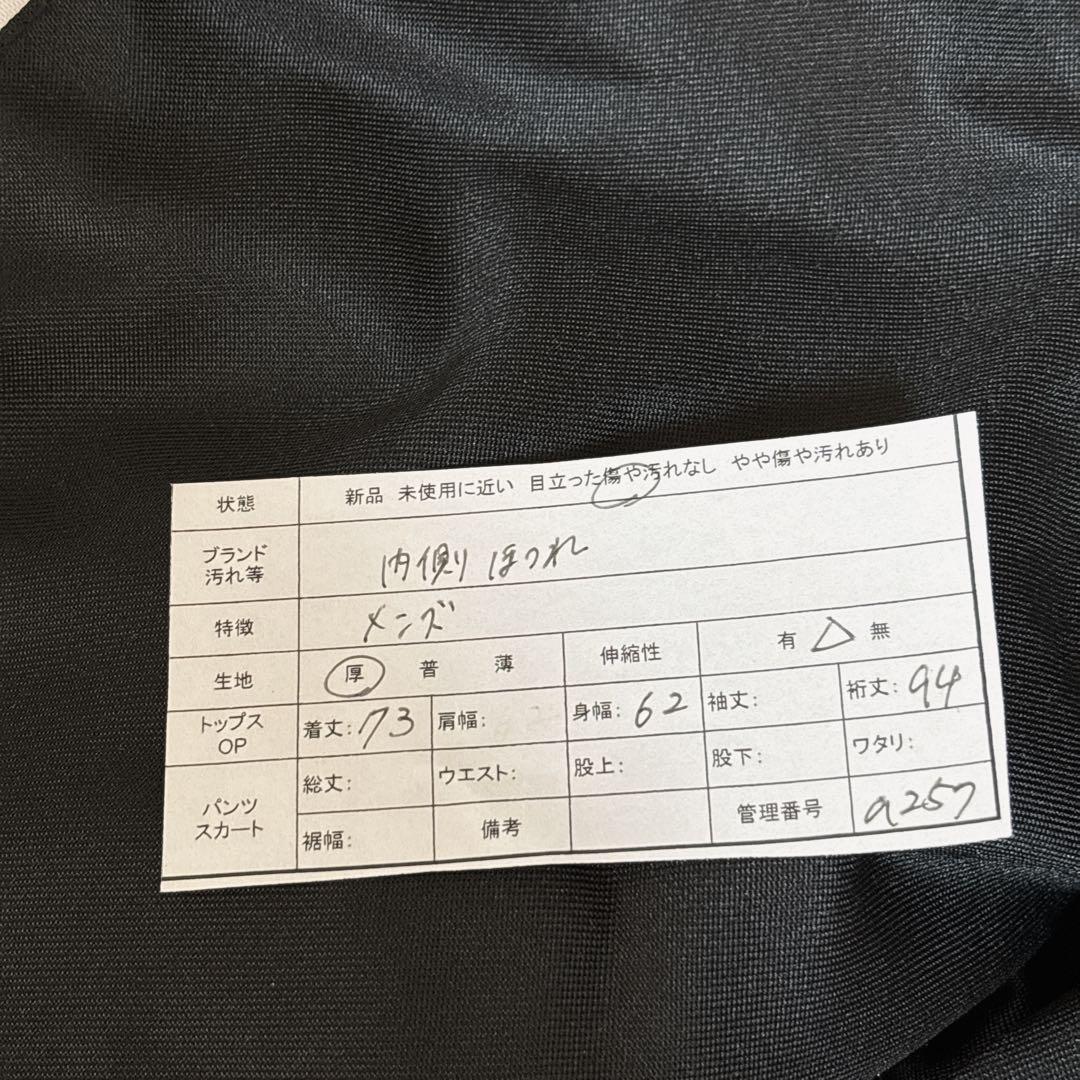 状態 新品 未使用に近い 目立った傷や汚れなし やや傷や汚れあり
ブランド
汚れ等 内側 ほつれ
特徴 メンズ
生地 厚 普 薄 伸縮性 有 △ 無
トップス
OP 着丈:73 肩幅: 身幅:62 袖丈: 裄丈:94
パンツ
スカート 総丈: ウエスト: 股上: 股下: ワタリ:
裾幅: 備考 管理番号 a257